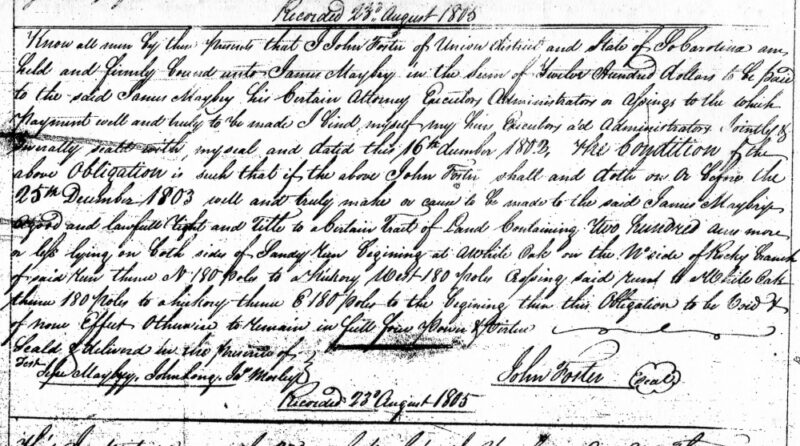 Recorded 23d August 1805
Know all men by these presents that I John Foster of Union District and State of So Carolina am
held and firmly bound unto James Maybry in the Sum of Twelve Hundred dollars to be paid
to the said James Maybry his Certain Attorney Executors Administrators or Assings to the which
Payment well and truly to be made I bind myself my heirs Executors a'd Administrators Jointly &
severally seald with my seal and dated this 16th December 1802, The Condition of the
above Obligation is such that if the above John Foster shall and doth on or before the
25th December 1803 well and truly make or cause to be made to the said James Maybry
a good and lawfull Right and Title to a Certain Tract of Land Containing Two Hundred acres more
or less lying on both sides of Sandy Run begining at a White Oak on the N side of Rocky branch
of said run thence N 180 Poles to a Hickory West 180 Poles Crossing said run to a White Oak
thence 180 Poles to a hickory thence E 180 Poles to the begining then this Obligation to be Void &
of none Effect Otherwise to remain in full force Power & Virtue
Seald & delivered in the presents of
Test
Maybry, John Long, Jas Mosley
John Foster (Seal)
Recorded 23d August 1805